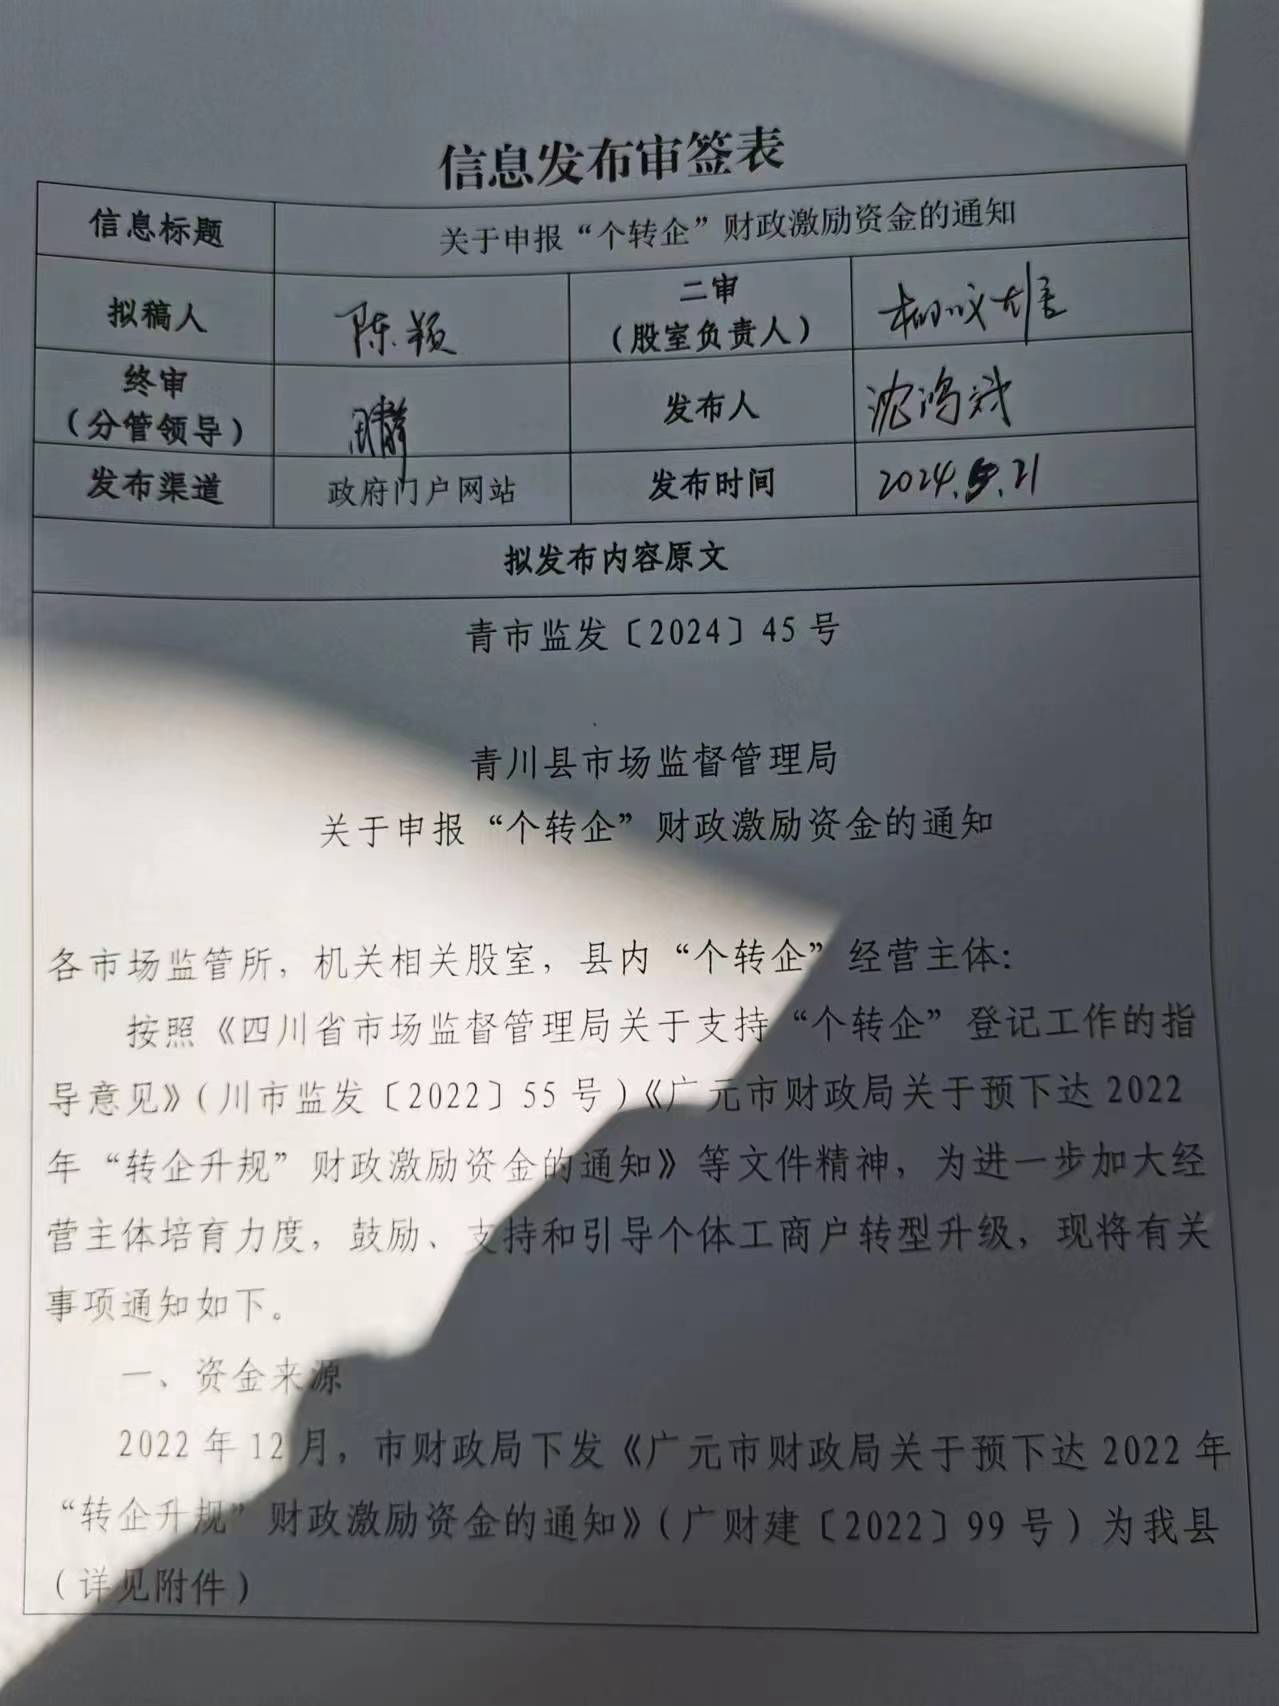 信息发布审签表
信息标题 关于申报“个转企”财政激励资金的通知
拟稿人 陈颖 二审
（股室负责人）
终审
（分管领导） 发布人 沈鸿斌
发布渠道 政府门户网站 发布时间 2024.5.21
拟发布内容原文
青市监发〔2024〕45号
青川县市场监督管理局
关于申报“个转企”财政激励资金的通知
各市场监管所，机关相关股室，县内“个转企”经营主体：
按照《四川省市场监督管理局关于支持“个转企”登记工作的指
导意见》（川市监发〔2022〕55号）《广元市财政局关于预下达2022
年“转企升规”财政激励资金的通知》等文件精神，为进一步加大经
营主体培育力度，鼓励、支持和引导个体工商户转型升级，现将有关
事项通知如下。
一、资金来源
2022年12月，市财政局下发《广元市财政局关于预下达2022年
“转企升规”财政激励资金的通知》（广财建〔2022〕99号）为我县
（详见附件）